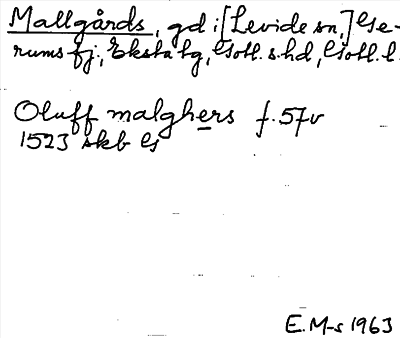 Mallgårds, gd i [Levide sn,] Ge-
rums fj., Eksta tg, Gotl. s. hd, Gotl. l.
Oluff malghers f. 57v
1523 skb G
E. M-s 1963